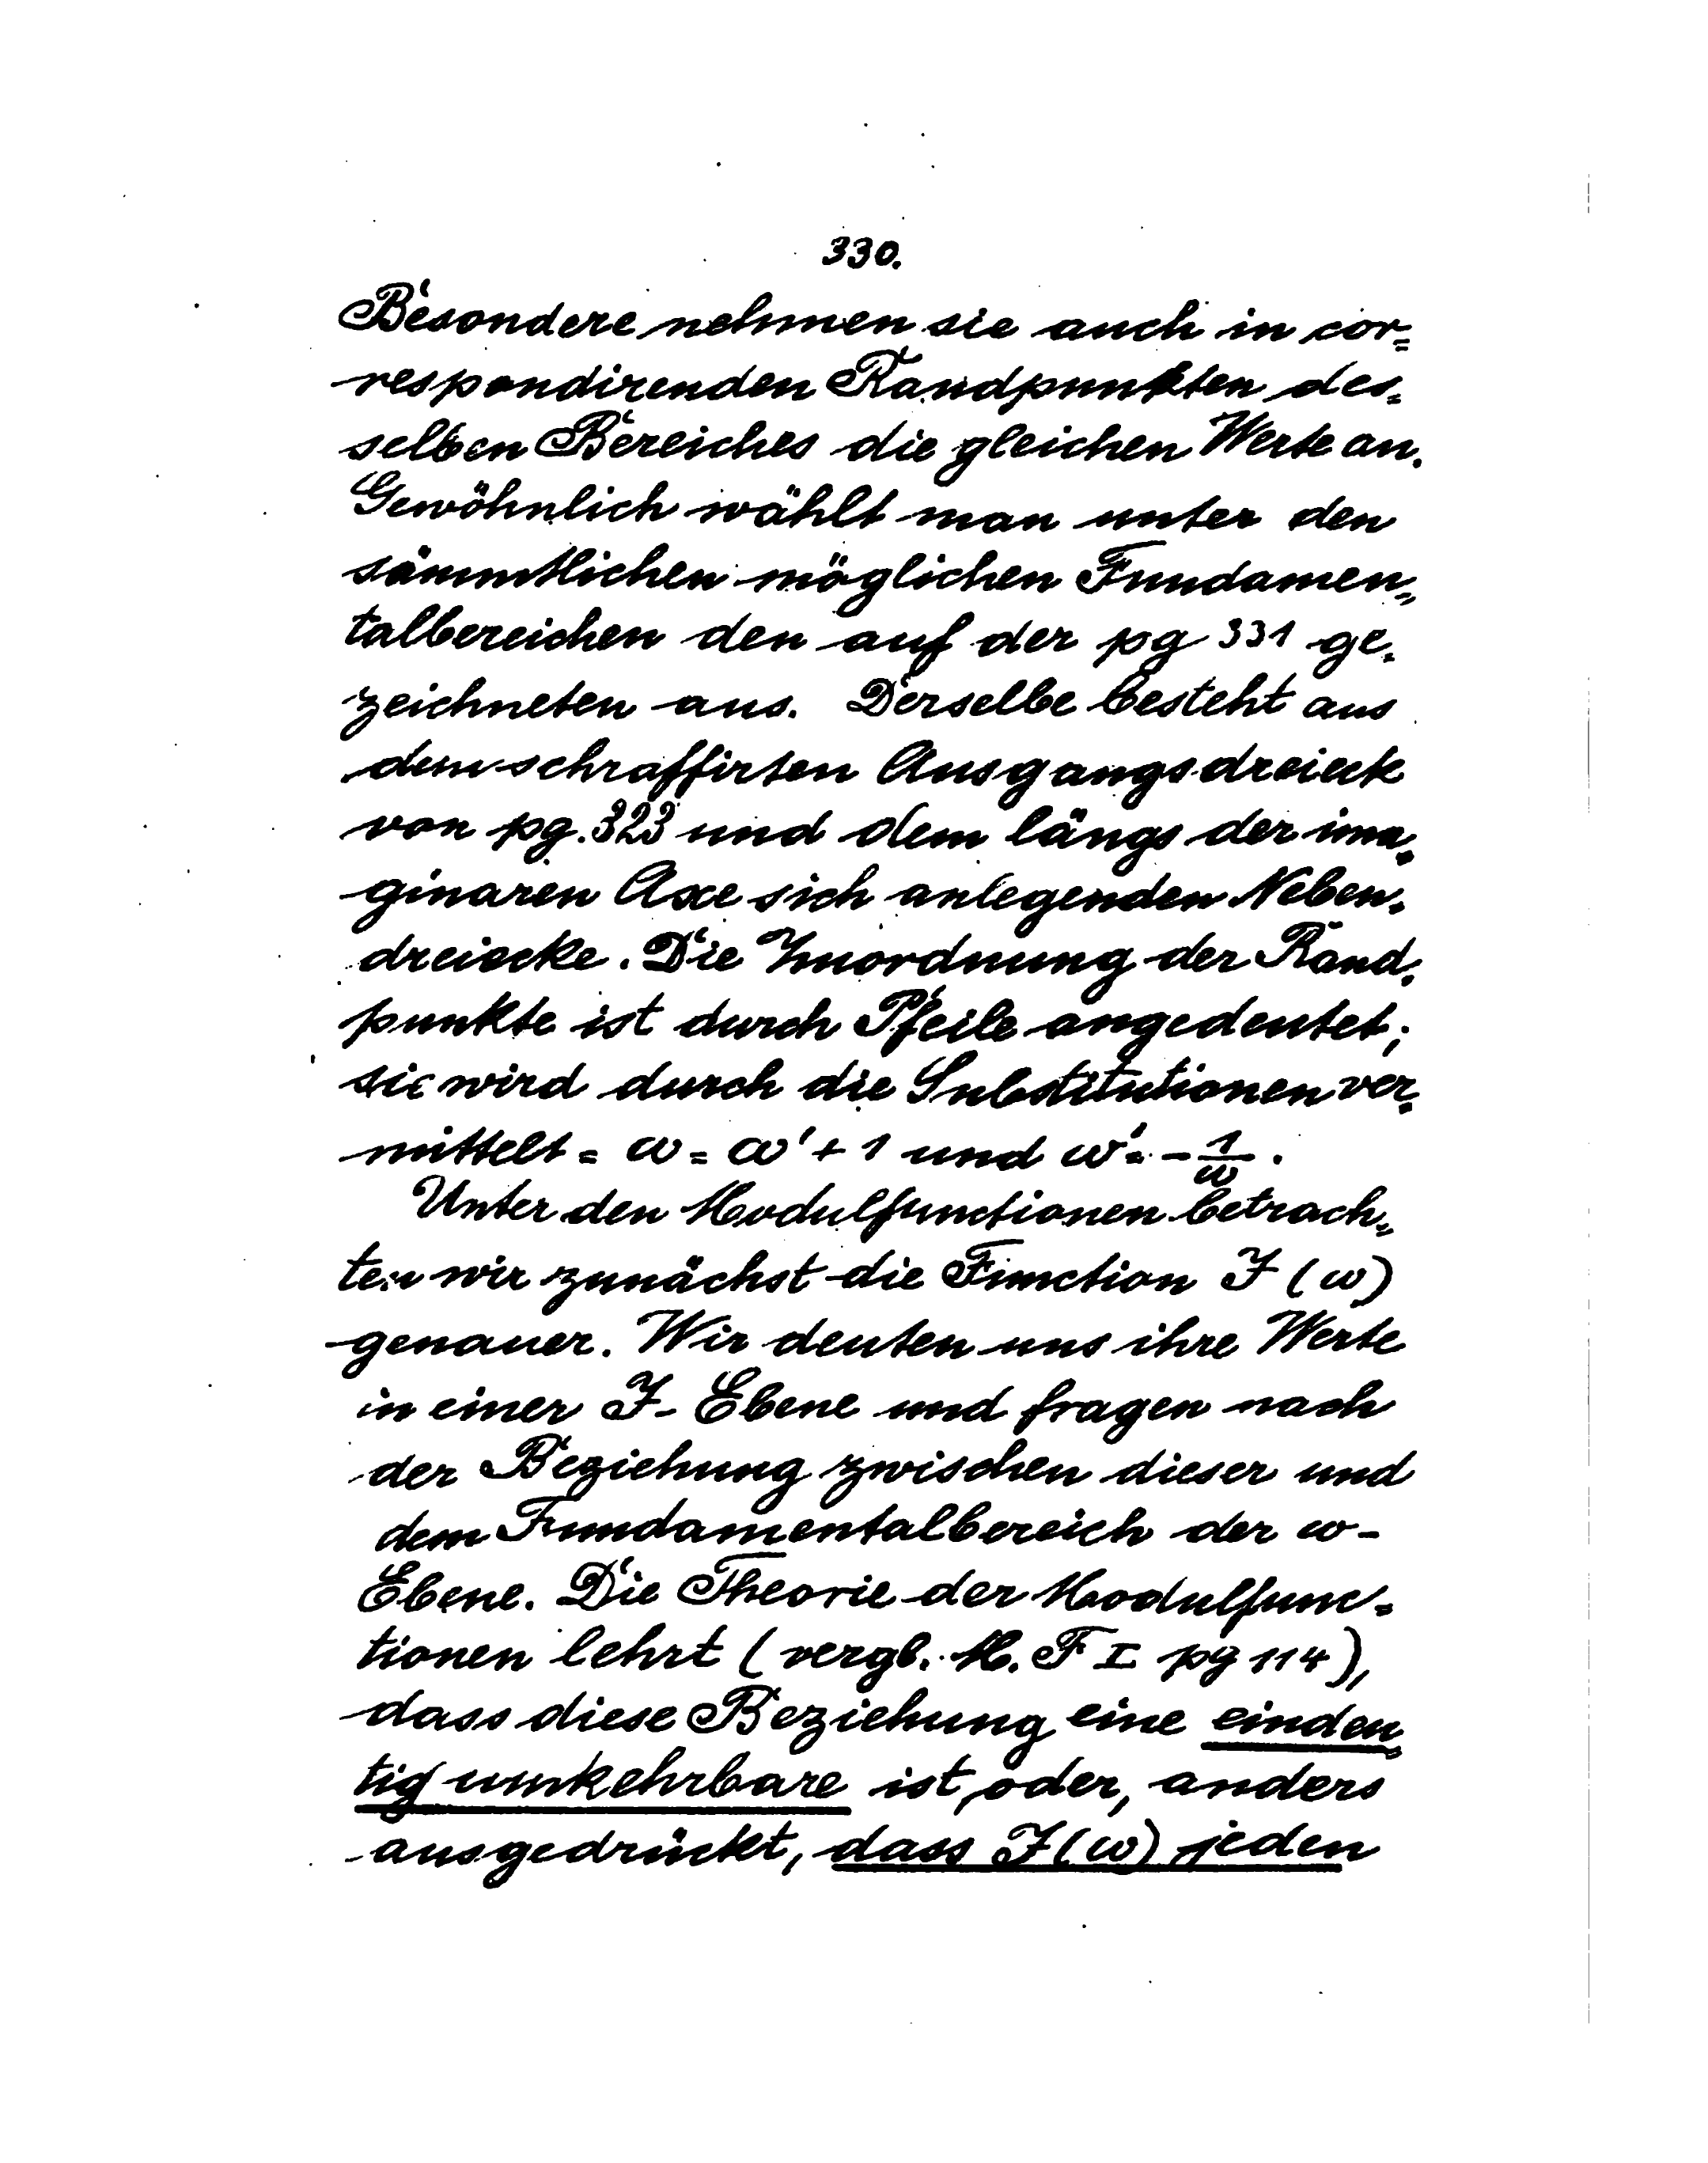 330.
Besondere nehmen sie auch in cor=
respondirenden Randpunkten des=
selben Bereiches die gleichen Werte an.
Gewöhnlich wählt man unter den
sämmtlichen möglichen Fundamen=
talbereichen den auf der pg 331 ge=
zeichneten aus. Derselbe besteht aus
dem schraffirten Ausgangsdreieck
von pg. 323 und dem längs der ima=
ginaren Axe sich anlegenden Neben=
dreiecke. Die Zuordnung der Rand=
punkte ist durch Pfeile angedeutet;
sie wird durch die Substitutionen ver=
mittelt = ω = ω' + 1 und ω' = - 1/ω.
Unter den Modulfunctionen betrach=
ten wir zunächst die Function J (ω)
genauer. Wir deuten uns ihre Werte
in einer J- Ebene und fragen nach
der Beziehung zwischen dieser und
dem Fundamentalbereich der ω-
Ebene. Die Theorie der Modulfunc=
tionen lehrt (vergl. M. F I pg 114),
dass diese Beziehung eine eindeu=
tig umkehrbare ist, oder, anders
ausgedrückt, dass J(ω) jeden